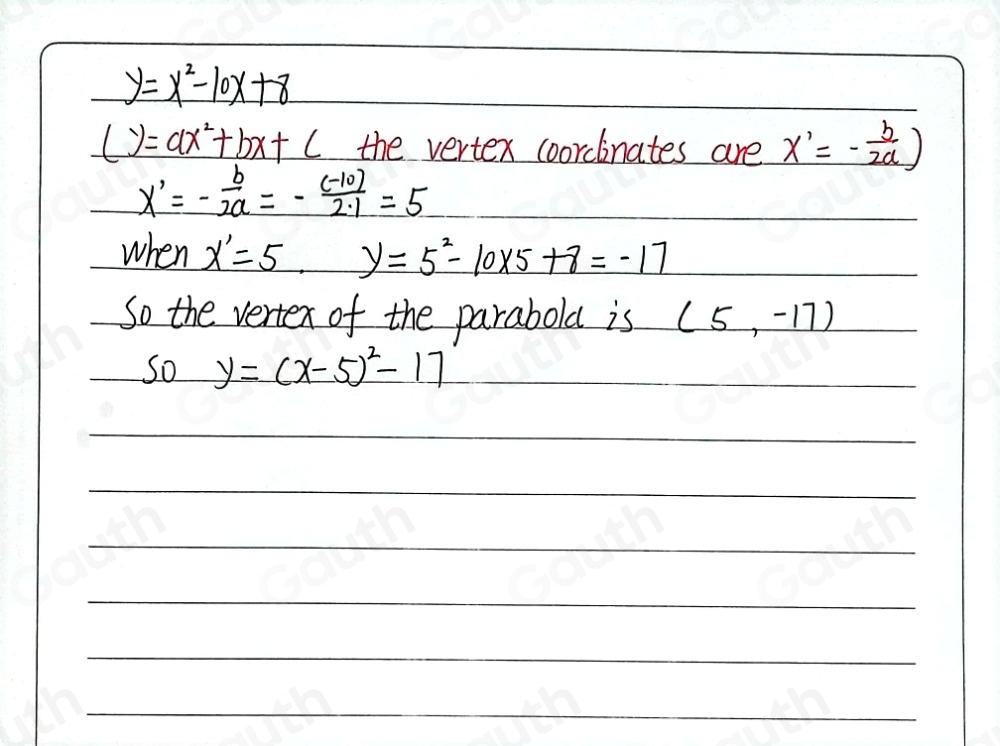 y=x²-10x+8
(y=ax²+bx+c the vertex coordinates are x'=-b/2a)
x'=-b/2a=-(-10)/2·1=5
when x'=5. y=5²-10×5+8=-17
So the vertex of the parabola is (5,-17)
so y=(x-5)²-17
Gauth